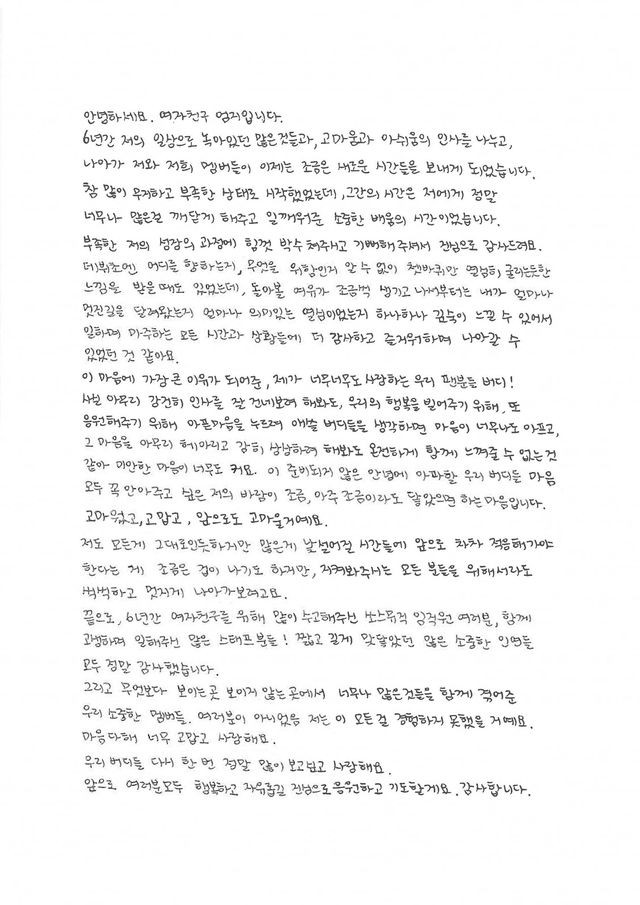 안녕하세요. 여자친구 엄지입니다.
6년간 저의 일상으로 녹아있던 많은것들과, 고마움과 아쉬움의 인사를 나누고,
나아가 저와 저희 멤버들이 이제는 조금은 새로운 시간들을 보내게 되었습니다.
참 많이 무지하고 부족한 상태로 시작했었는데, 그간의 시간은 저에게 정말
너무나 많은걸 깨닫게 해주고 일깨워준 소중한 배움의 시간이었습니다.
부족한 저의 성장의 과정에 힘껏 박수 쳐주시고 기뻐해주셔서 진심으로 감사드려요.
데뷔초엔 어디를 향하는지, 무엇을 위함인지 알 수 없이 쳇바퀴만 열심히 굴리는듯한
느낌을 받을때도 있었는데, 돌아볼 여유가 조금씩 생기고 나서부터는 내가 얼마나
멋진길을 달려왔는지 얼마나 의미있는 열심이었는지 하나하나 깊숙이 느낄 수 있어서
일하며 마주하는 모든 시간과 상황들에 더 감사하고 즐거워하며 나아갈 수
있었던 것 같아요.
이 마음에 가장 큰 이유가 되어준, 제가 너무너무도 사랑하는 우리 팬분들 버디!
사실 아무리 강건히 인사를 잘 건네보려 해봐도, 우리의 행복을 빌어주기 위해, 또
응원해주기 위해 아픈마음을 누르며 애쓸 버디들을 생각하면 마음이 너무나도 아프고,
그 마음을 아무리 헤아리고 감히 상상하려 해봐도 온전하게 함께 느껴줄 수 없는것
같아 미안한 마음이 너무도 커요. 이 준비되지 않은 안녕에 아파할 우리 버디들 마음
모두 꼭 안아주고 싶은 저의 바람이 조금, 아주 조금이라도 닿았으면 하는 마음입니다.
고마웠고, 고맙고, 앞으로도 고마울거예요.
저도 모든게 그대로인듯하지만 많은게 낯설어질 시간들에 앞으로 차차 적응해가야
한다는 게 조금은 겁이 나기도 하지만, 지켜봐주시는 모든 분들을 위해서라도
씩씩하고 멋지게 나아가보려고요.
끝으로, 6년간 여자친구를 위해 많이 수고해주신 쏘스뮤직 임직원 여러분, 함께
고생하며 일해주신 많은 스태프분들! 짧고 길게 맞닿았던 많은 소중한 인연들
모두 정말 감사했습니다.
그리고 무엇보다 보이는곳 보이지 않는곳에서 너무나 많은것들을 함께 겪어준
우리 소중한 멤버들. 여러분이 아니었음 저는 이 모든걸 경험하지 못했을 거예요.
마음다해 너무 고맙고 사랑해요.
우리 버디들 다시 한 번 정말 많이 보고싶고 사랑해요.
앞으로 여러분모두 행복하고 자유롭길 진심으로 응원하고 기도할게요. 감사합니다.